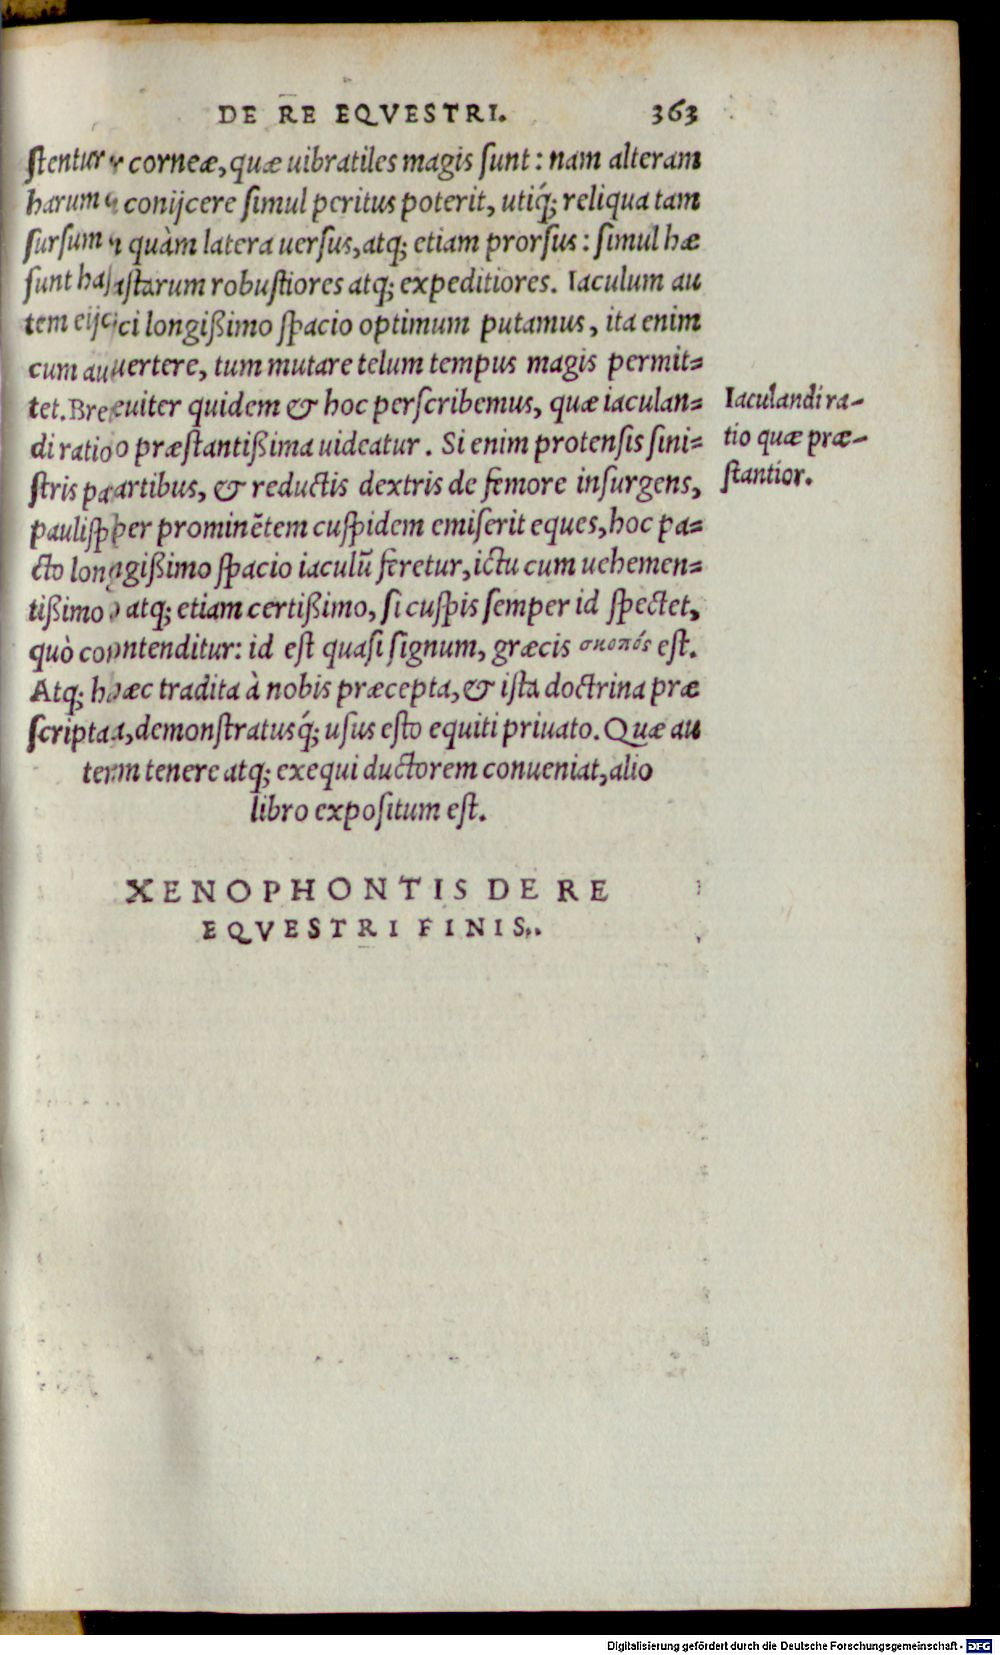 DE RE EQVESTRI. 363
ſtentur corneæ, quæ uibratiles magis ſunt: nam alteram
harum conijcere ſimul peritus poterit, utiq́; reliqua tam
ſurſum quàm latera uerſus, atq; etiam prorſus: ſimul hæ
ſunt haſtarum robuſtiores atq; expeditiores. Iaculum au
tem eijci longißimo ſpacio optimum putamus, ita enim
cum auertere, tum mutare telum tempus magis permit=
tet. Breuiter quidem & hoc perſcribemus, quæ iaculan=
di ratio præſtantißima uideatur. Si enim protenſis ſini=
ſtris partibus, & reductis dextris de femore inſurgens,
pauliſper prominētem cuſpidem emiſerit eques, hoc pa=
cto longißimo ſpacio iaculū feretur, ictu cum uehemen=
tißimo atq; etiam certißimo, ſi cuſpis ſemper id ſpectet,
quò contenditur: id eſt quaſi ſignum, græcis σκοπός eſt.
Atq; hæc tradita à nobis præcepta, & iſta doctrina præ
ſcripta, demonſtratusq́; uſus eſto equiti priuato. Quæ au
tem tenere atq; exequi ductorem conueniat, alio
libro expoſitum eſt.
Iaculandi ra-
tio quæ præ-
ſtantior.
XENOPHONTIS DE RE
EQVESTRI FINIS.
Digitalisierung gefördert durch die Deutsche Forschungsgemeinschaft - DFG